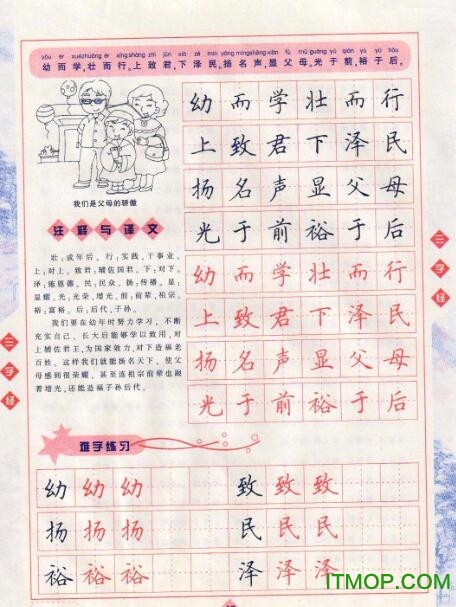 yòu ér xué zhuàng ér xíng shàng zhì jūn xià zé mín yáng míng shēng xiǎn fù mǔ guāng yú qián yù yú hòu
幼而学,壮而行。上致君,下泽民。扬名声,显父母。光于前,裕于后。
我们是父母的骄傲
注释与译文
壮,成年后。行:实践,干事业。
上:对上。致君:辅佐国君。下:对下。
泽:施恩德。民:民众。扬:传播。显:
显耀。光:光荣,增光。前:前辈,祖宗。
裕:富裕。后:后代,子孙。
我们要在幼年时努力学习,不断
充实自己,长大后能够学以致用,对
上辅佐君王,为国家效力,对下造福老
百姓。这样我们就能扬名天下,使父
母感到很荣耀,甚至连祖宗前辈也跟
着增光,还能造福子孙后代。
幼而学壮而行
上致君下泽民
扬名声显父母
光于前裕于后
幼而学壮而行
上致君下泽民
扬名声显父母
光于前裕于后
三字经
三字经
难字练习
幼幼幼 致致致
扬扬扬 民民民
裕裕裕 泽泽泽
ITMOP.COM